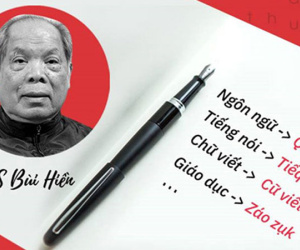 S Bùi Hiền
Ngôn ngữ -> Q
Tiếng nói -> Tiếq
Chữ viết -> Cữ viế
Giáo dục -> Záo zụk
...